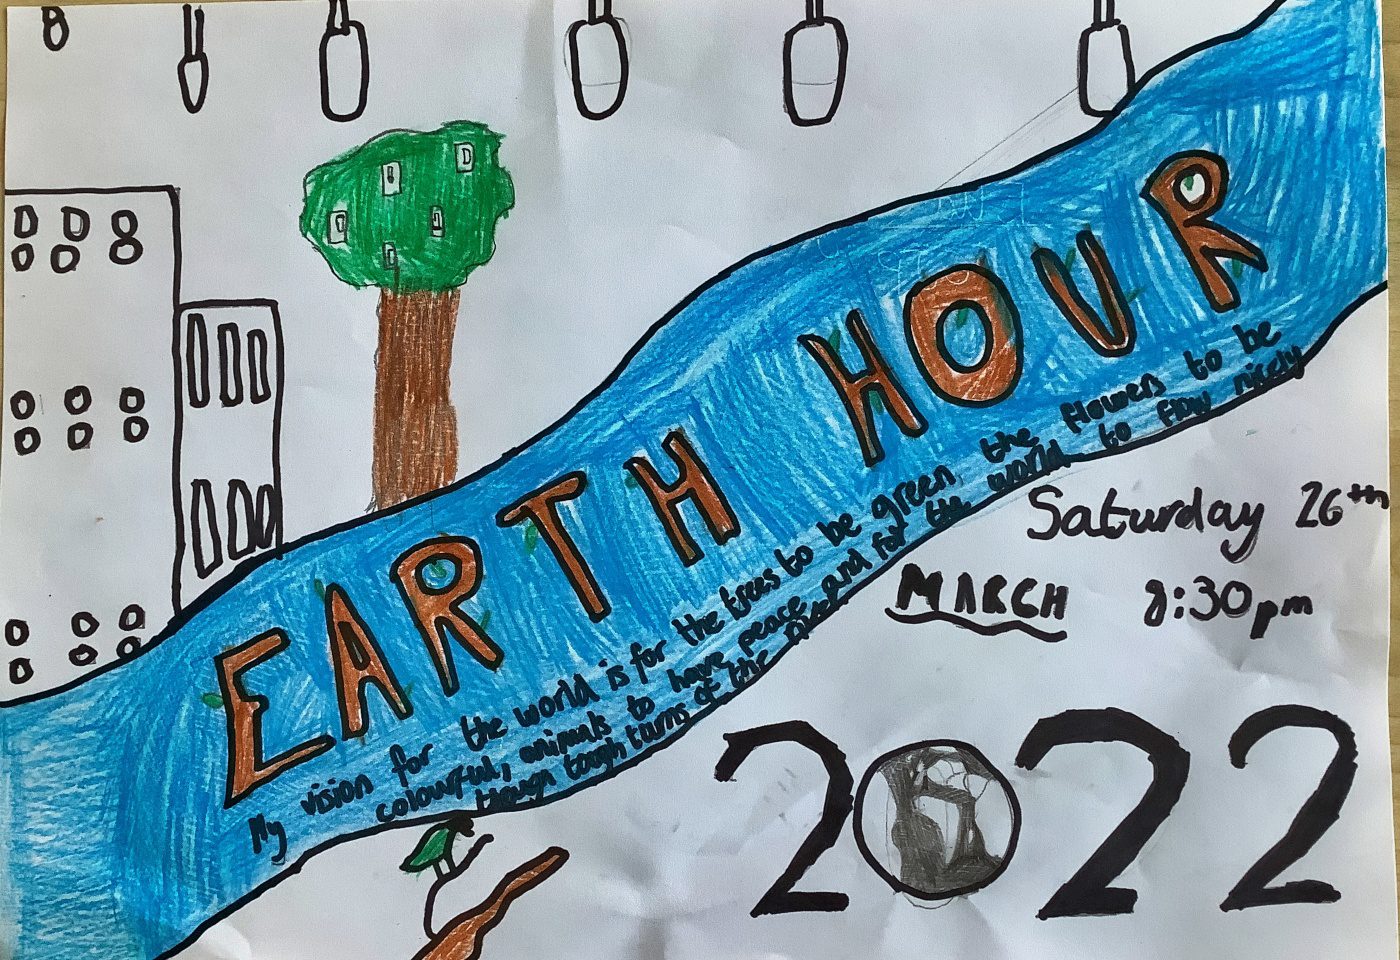 EARTH HOUR
My vision for the world is for the trees to be green, the flowers to be
colourful, animals to have peace and for the world to flow nicely
though tough turns of the river.
Saturday 26th
MARCH 8:30pm
2022